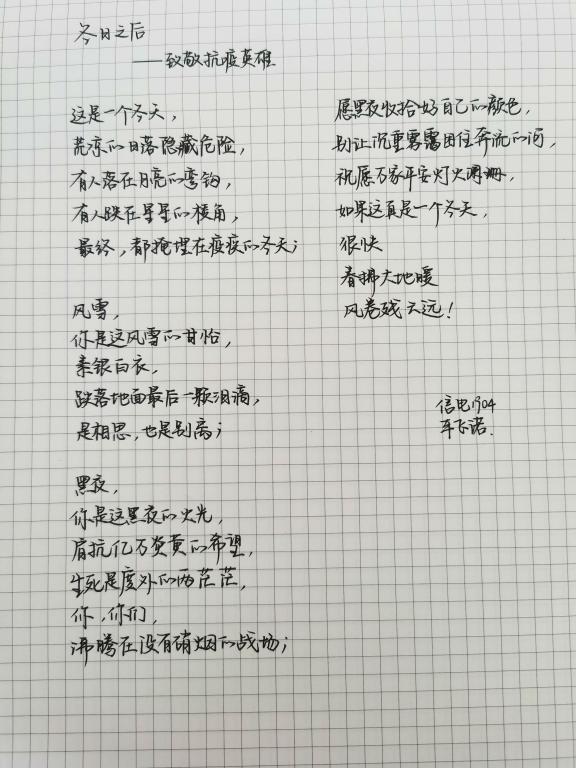 冬日之后
——致敬抗疫英雄
这是一个冬天，
荒凉的日落隐藏危险，
有人落在月亮的弯钩，
有人跌在星星的棱角，
最终，都掩埋在瘟疫的冬天；
风雪，
你是这风雪的甘怡，
素银白衣，
跌落地面最后一颗泪滴，
是相思，也是别离；
黑夜，
你是这黑夜的火光，
肩抗亿万炎黄的希望，
生死是度外的两茫茫，
你，你们，
沸腾在没有硝烟的战场；
愿黑夜收拾好自己的颜色，
别让沉重雾霭困住奔流的河，
祝愿万家平安灯火阑珊，
如果这真是一个冬天，
很快
春拂大地暖
风卷残云远！
信电1904
车飞诺.